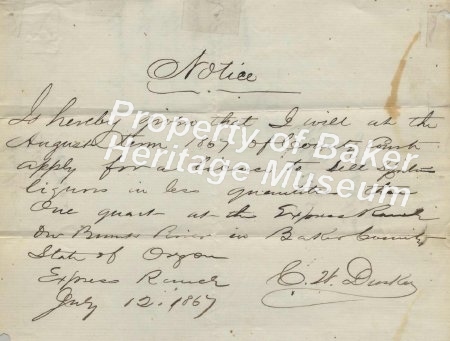 Notice
Is hereby given that I will at the
August Term 1867 of County Court
apply for a license to sell
liquors in less quantities than
One quart at the Express Ranch
on Burnt River in Baker County
State of Oregon
Express Ranch
July 12, 1867
C. W. Durkee
Property of Baker
Heritage Museum